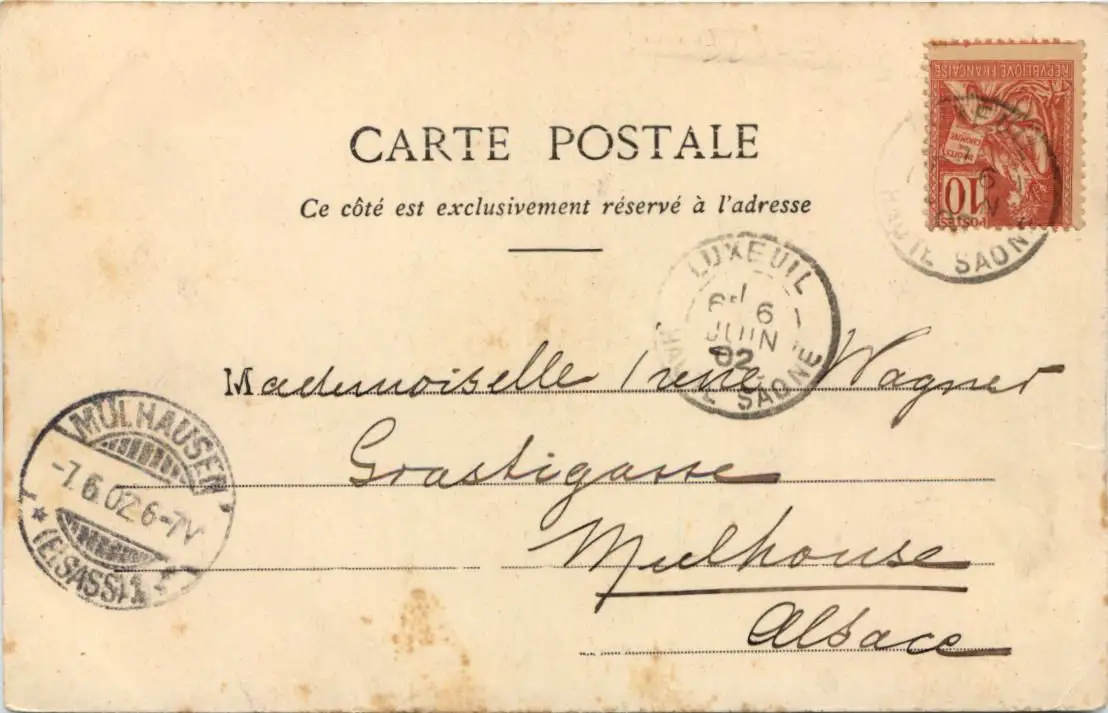 CARTE POSTALE
Ce côté est exclusivement réservé à l'adresse
REPVBLIQVE FRANÇAISE
DROITS DE L'HOMME
10
POSTES
HAUTE SAONE
LUXEUIL
6
JUIN
02
HAUTE SAONE
Mademoiselle Irène Wagner
Grastigasse
Mulhouse
Alsace
MÜLHAUSEN
-7.6.02 6-7V
* (ELSASS) 1